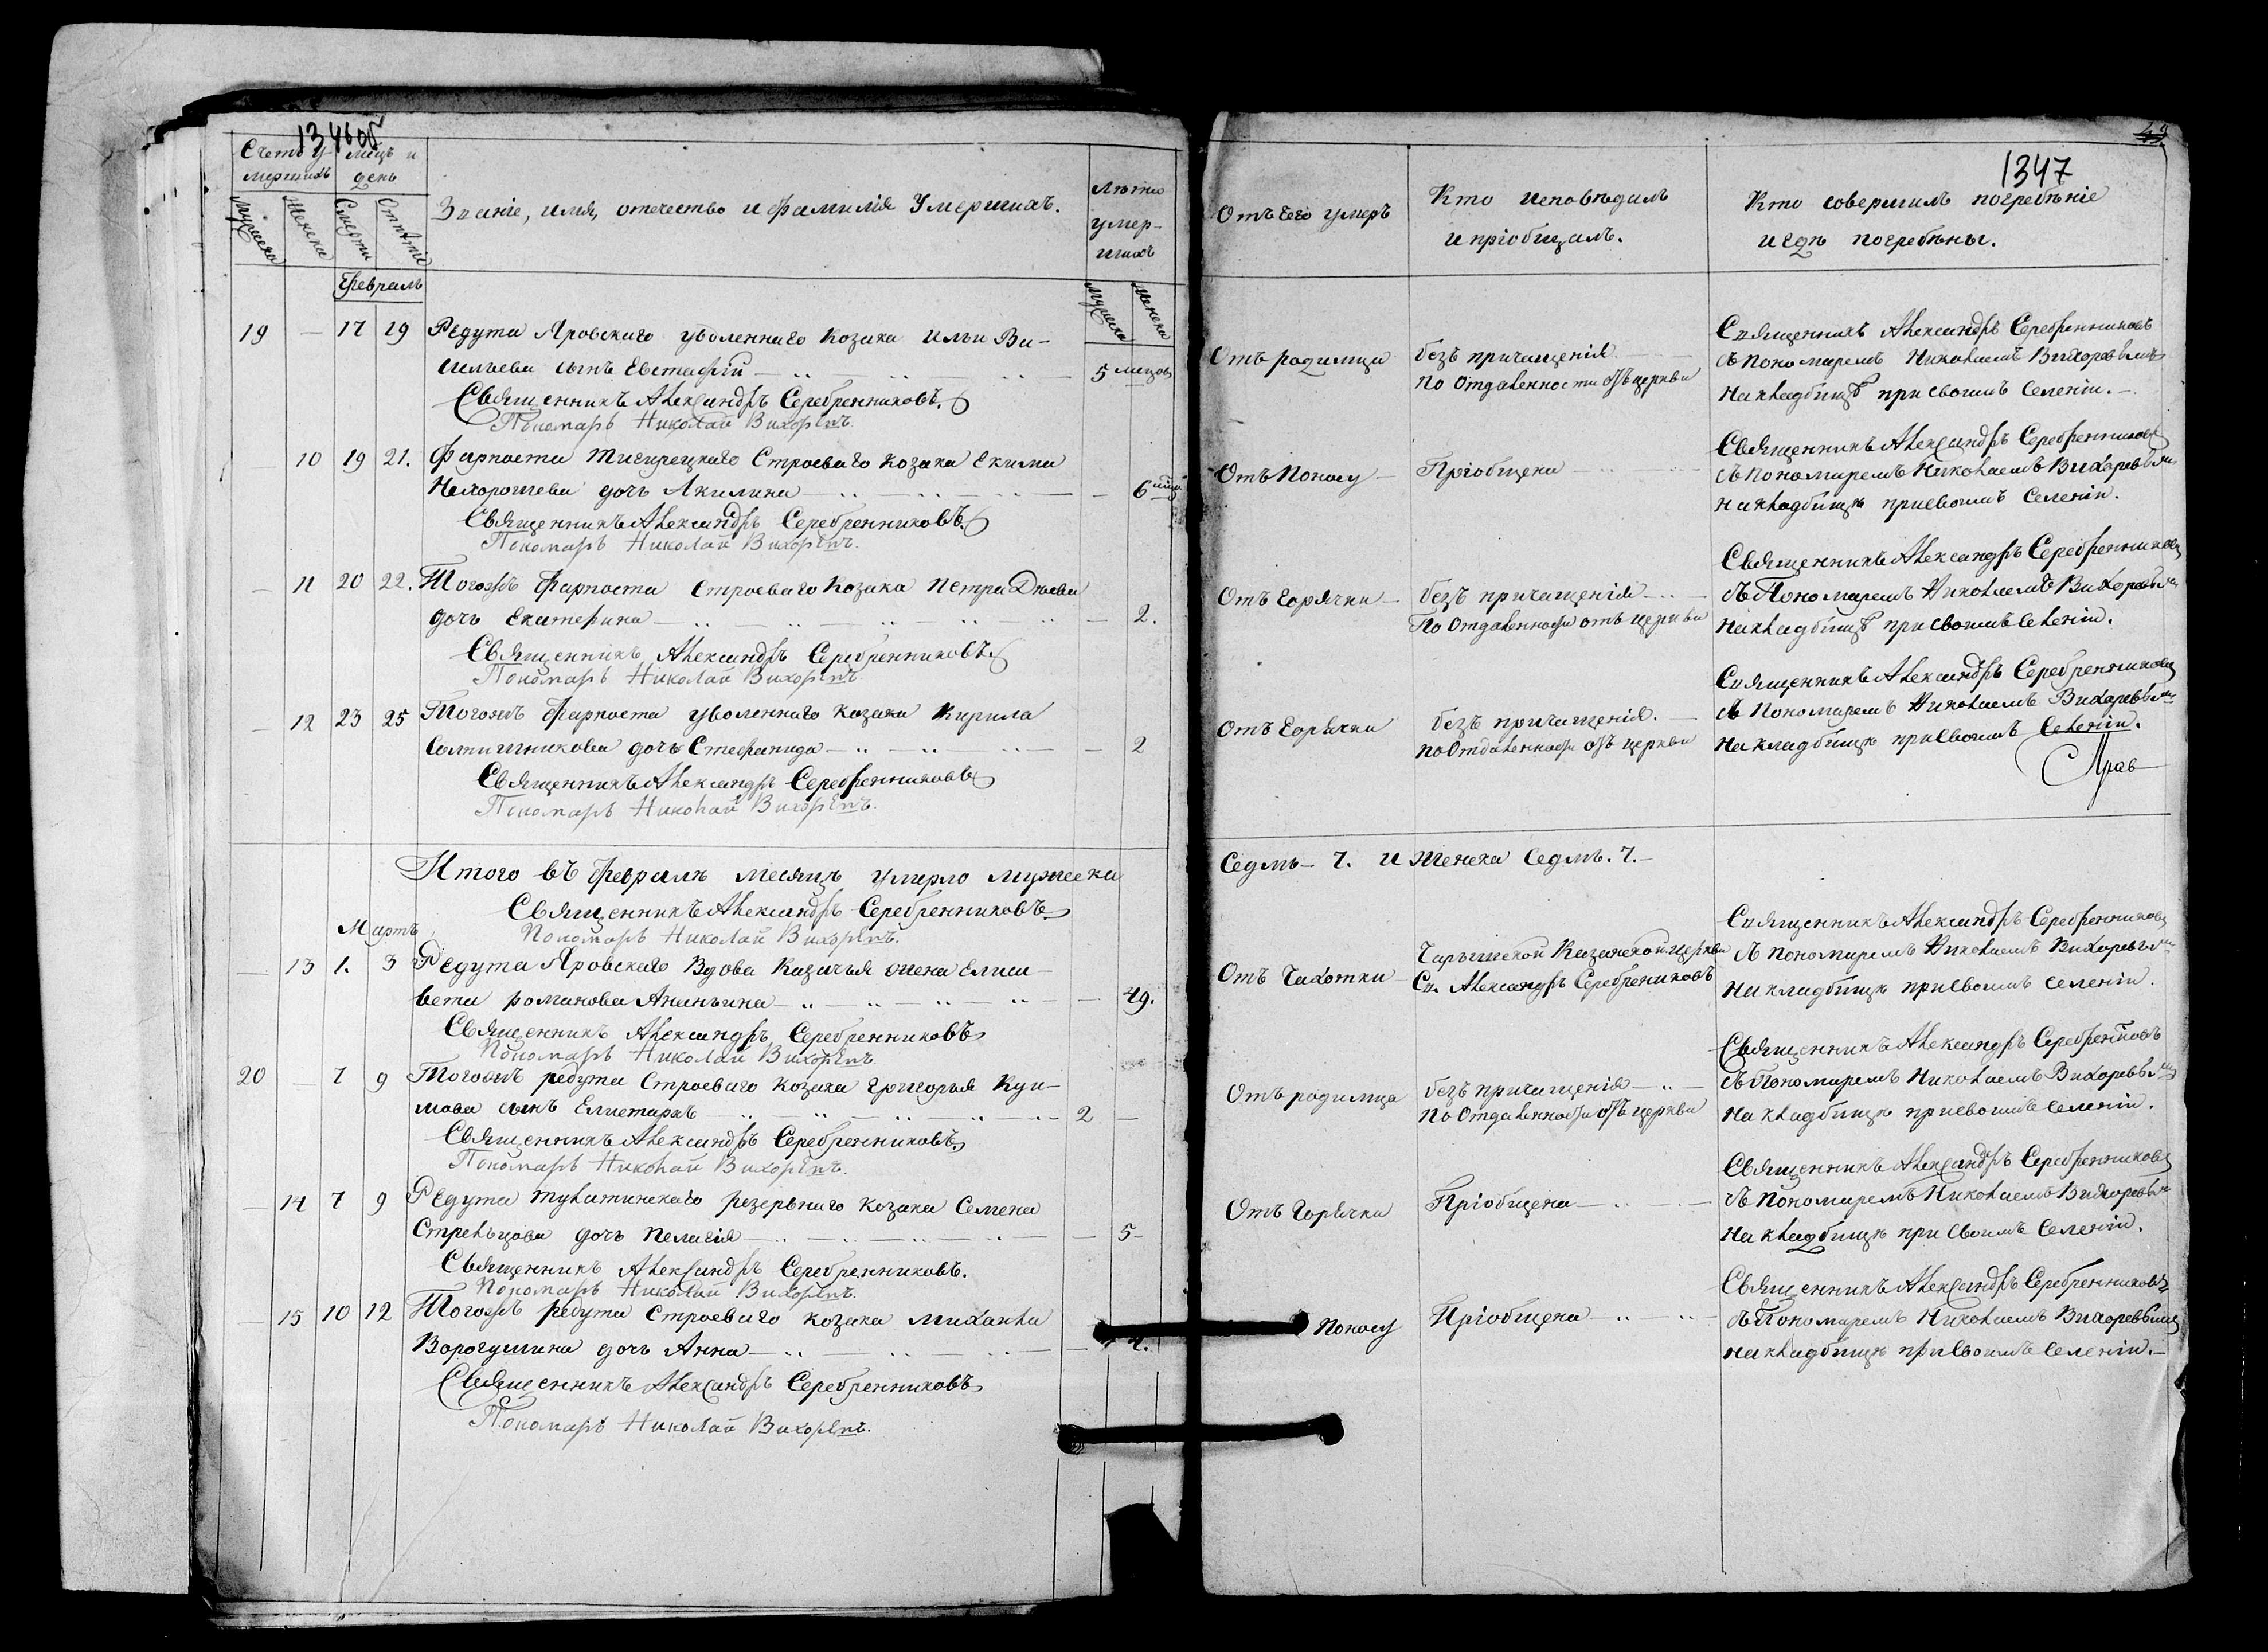 1346об
Счетъ у-
мершихъ
мцъ и
день
Званіе, имя, отечество и фамилія Умершихъ.
Лѣта
умер-
шихъ
мужеска
женска
Смерти
Отпѣтіе
мужеска
женска
Февраль
19 — 17 19 Редута Яровскаго уволеннаго козака Ильи Ва-
сильева сынъ Евстафій 5 мцов
Священникъ Александръ Серебренниковъ.
Пономарь Николай Вихоревъ.
10 19 21. Фарпоста Тигирецкаго Строеваго козака Екима
Нехорошева дочь Акилина — 6
Священникъ Александръ Серебренниковъ.
Пономарь Николай Вихоревъ.
— 11 20 22. Тогожъ фарпоста Строеваго козака Петра
дочь Екатерина — 2.
Священникъ Александръ Серебренниковъ
Пономарь Николай Вихоревъ.
— 12 23 25 Тогожъ фарпоста уволеннаго козака Кирила
дочь Стефанида — 2
Священникъ Александръ Серебренниковъ
Пономарь Николай Вихоревъ.
Итого въ февралѣ месяцѣ умерло мужеска
Священникъ Александръ Серебренниковъ
Пономарь Николай Вихоревъ.
Мартъ
— 13 1. 3 Редута Яровскаго Вдова казачья жена Елиса-
вета романова Ананьина — 49.
Священникъ Александръ Серебренниковъ
Пономарь Николай Вихоревъ
20 7 9 Тогожъ редута Строеваго козака Григорья Куи-
мова сынъ Елистархъ 2 —
Священникъ Александръ Серебренниковъ
Пономарь Николай Вихоревъ.
— 14 7 9 Редута Тулатинскаго резервнаго козака Семена
Стрельцова дочь Пелагія — 5-
Священникъ Александръ Серебренниковъ.
Пономарь Николай Вихоревъ.
— 15 10 12 Тогожъ редута Строеваго козака Михаила
Ворогушина дочь Анна — 4.
Священникъ Александръ Серебренниковъ
Пономарь Николай Вихоревъ.
1347
Отъ чего умеръ
Кто исповѣдалъ
и пріобщалъ.
Кто совершилъ погребѣніе
и гдѣ погребѣны.
Отъ родимца
безъ причащенія
по отдаленности отъ церкви
Священникъ Александръ Серебренниковъ
съ Пономаремъ Николаемъ Вихоревымъ
на кладбищѣ при своемъ селеніи.
Отъ Поносу
Пріобщена
Священникъ Александръ Серебренниковъ
съ Пономаремъ Николаемъ Вихоревым
на кладбищѣ при своемъ селеніи.
Отъ Горячки
безъ причащенія
По отдаленности отъ церкви
Священникъ Александръ Серебренниковъ
съ Пономаремъ Николаемъ Вихоревым
на кладбищѣ при своемъ селеніи.
Отъ Горячки
безъ причащенія.
по отдаленности отъ церкви
Священникъ Александръ Серебренниковъ
съ Пономаремъ Николаемъ Вихоревым
на кладбищѣ при своемъ селеніи.
Седмь 7. и женска седмь. 7.
Отъ чахотки
Чарышской Казанской церкви
Св. Александръ Серебрениковъ
Священникъ Александръ Серебренниковъ
съ Пономаремъ Николаемъ Вихоревым
на кладбищѣ при своемъ селеніи.
Отъ родимца
безъ причащенія
по отдаленности отъ церкви
Священникъ Александръ Серебренниковъ
съ Пономаремъ Николаемъ Вихоревым
на кладбищѣ при своемъ селеніи.
Отъ Горячки
Пріобщена
Священникъ Александръ Серебренниковъ
съ Пономаремъ Николаемъ Вихоревым
на кладбищѣ при своемъ селеніи.
Поносу
Пріобщена
Священникъ Александръ Серебренниковъ
съ Пономаремъ Николаемъ Вихоревымъ
на кладбищѣ при своемъ селеніи.